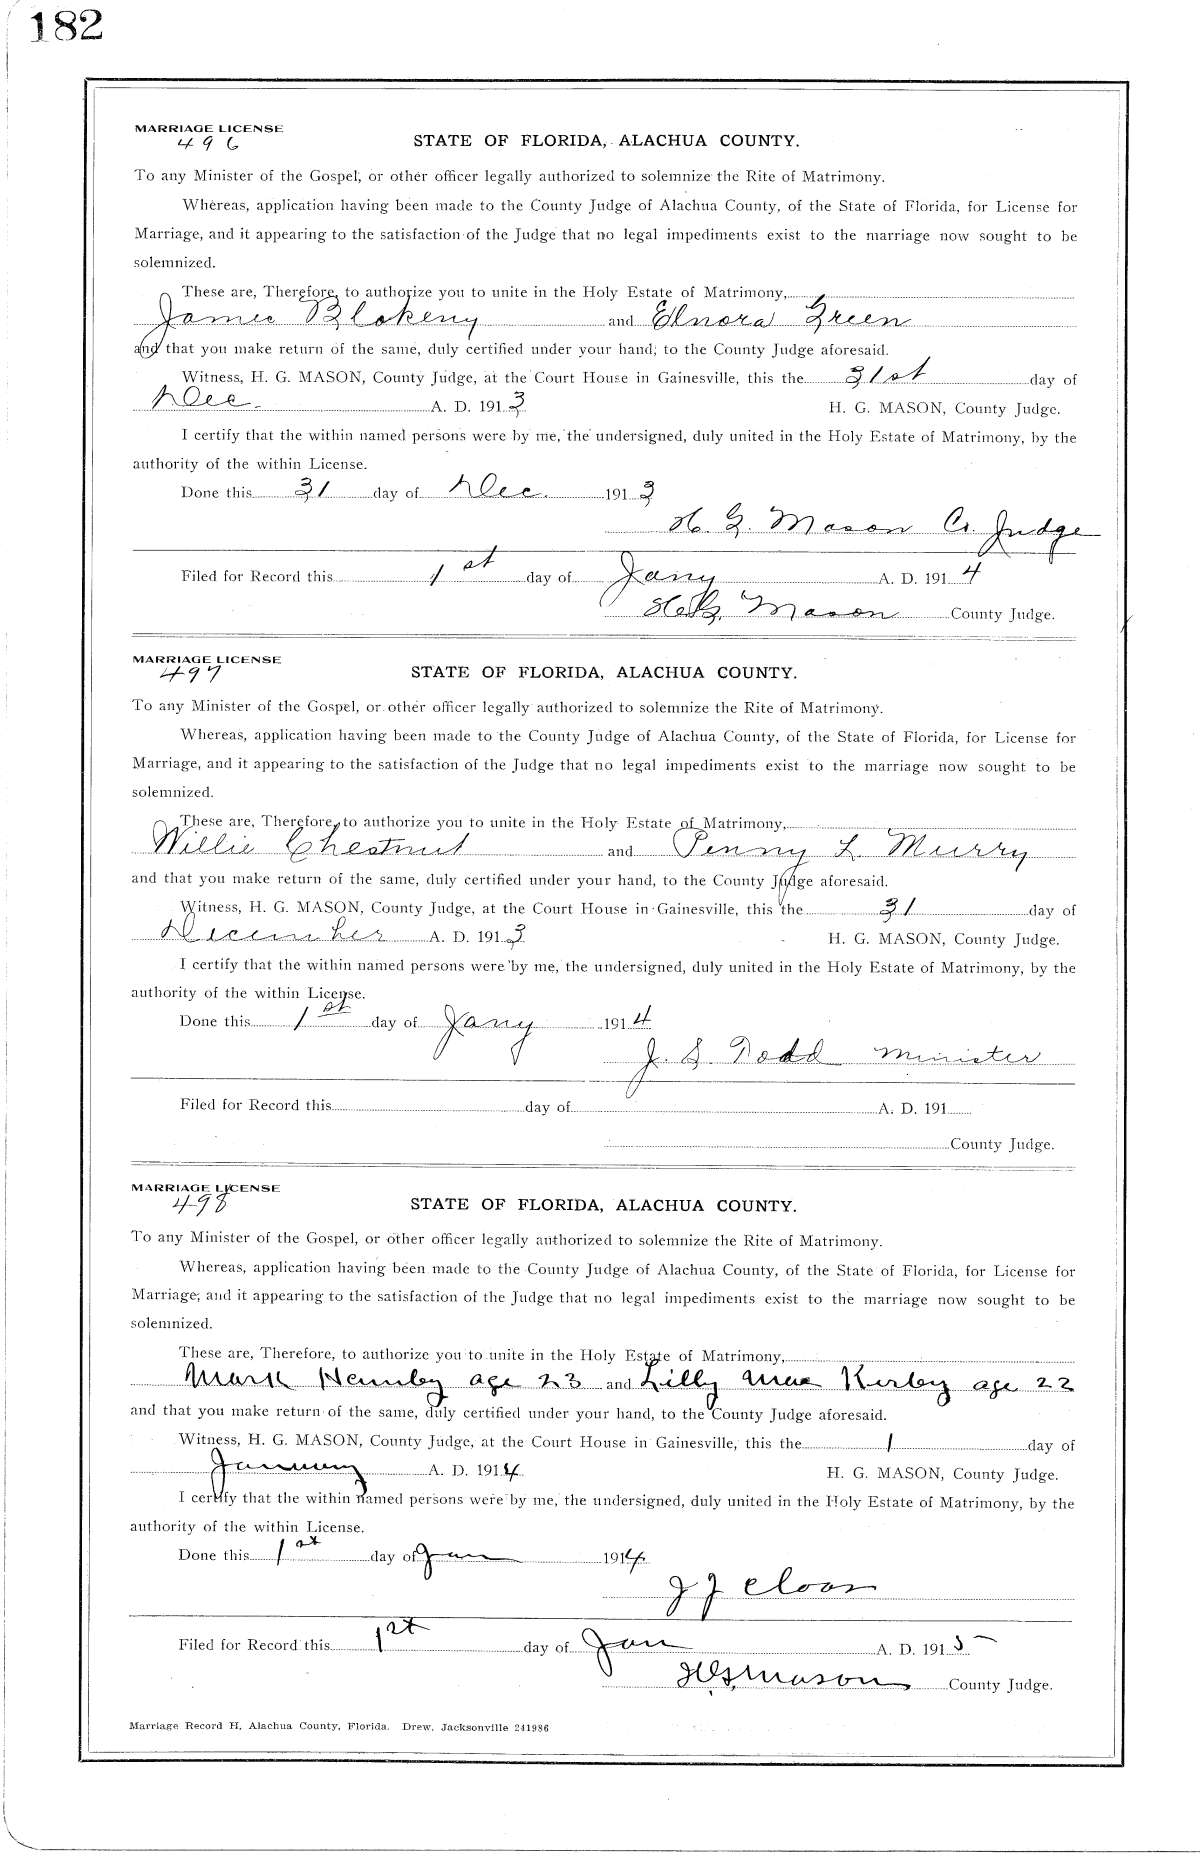 182
MARRIAGE LICENSE
496
STATE OF FLORIDA, ALACHUA COUNTY.
To any Minister of the Gospel, or other officer legally authorized to solemnize the Rite of Matrimony.
Whereas, application having been made to the County Judge of Alachua County, of the State of Florida, for License for
Marriage, and it appearing to the satisfaction of the Judge that no legal impediments exist to the marriage now sought to be
solemnized.
These are, Therefore, to authorize you to unite in the Holy Estate of Matrimony,
James Blakeny and Elnora Green
and that you make return of the same, duly certified under your hand, to the County Judge aforesaid.
Witness, H. G. MASON, County Judge, at the Court House in Gainesville, this the 31st day of
Dec. A. D. 1913 H. G. MASON, County Judge.
I certify that the within named persons were by me, the undersigned, duly united in the Holy Estate of Matrimony, by the
authority of the within License.
Done this 31 day of Dec. 1913
H. G. Mason Co. Judge
Filed for Record this 1st day of Jany A. D. 1914
H. G. Mason County Judge.
MARRIAGE LICENSE
497
STATE OF FLORIDA, ALACHUA COUNTY.
To any Minister of the Gospel, or other officer legally authorized to solemnize the Rite of Matrimony.
Whereas, application having been made to the County Judge of Alachua County, of the State of Florida, for License for
Marriage, and it appearing to the satisfaction of the Judge that no legal impediments exist to the marriage now sought to be
solemnized.
These are, Therefore, to authorize you to unite in the Holy Estate of Matrimony,
Willie Chestnut and Penny L Murry
and that you make return of the same, duly certified under your hand, to the County Judge aforesaid.
Witness, H. G. MASON, County Judge, at the Court House in Gainesville, this the 31 day of
December A. D. 1913 H. G. MASON, County Judge.
I certify that the within named persons were by me, the undersigned, duly united in the Holy Estate of Matrimony, by the
authority of the within License.
Done this 1st day of Jany 1914
J. S. Todd Minister
Filed for Record this day of A. D. 191
County Judge.
MARRIAGE LICENSE
498
STATE OF FLORIDA, ALACHUA COUNTY.
To any Minister of the Gospel, or other officer legally authorized to solemnize the Rite of Matrimony.
Whereas, application having been made to the County Judge of Alachua County, of the State of Florida, for License for
Marriage, and it appearing to the satisfaction of the Judge that no legal impediments exist to the marriage now sought to be
solemnized.
These are, Therefore, to authorize you to unite in the Holy Estate of Matrimony,
Mark age 23 and Lilly Mae Kirby age 22
and that you make return of the same, duly certified under your hand, to the County Judge aforesaid.
Witness, H. G. MASON, County Judge, at the Court House in Gainesville, this the 1 day of
January A. D. 1914 H. G. MASON, County Judge.
I certify that the within named persons were by me, the undersigned, duly united in the Holy Estate of Matrimony, by the
authority of the within License.
Done this 1st day of Jan 1914
J J
Filed for Record this 1st day of Jan A. D. 1915
H. G. Mason County Judge.
Marriage Record H, Alachua County, Florida. Drew, Jacksonville 241986